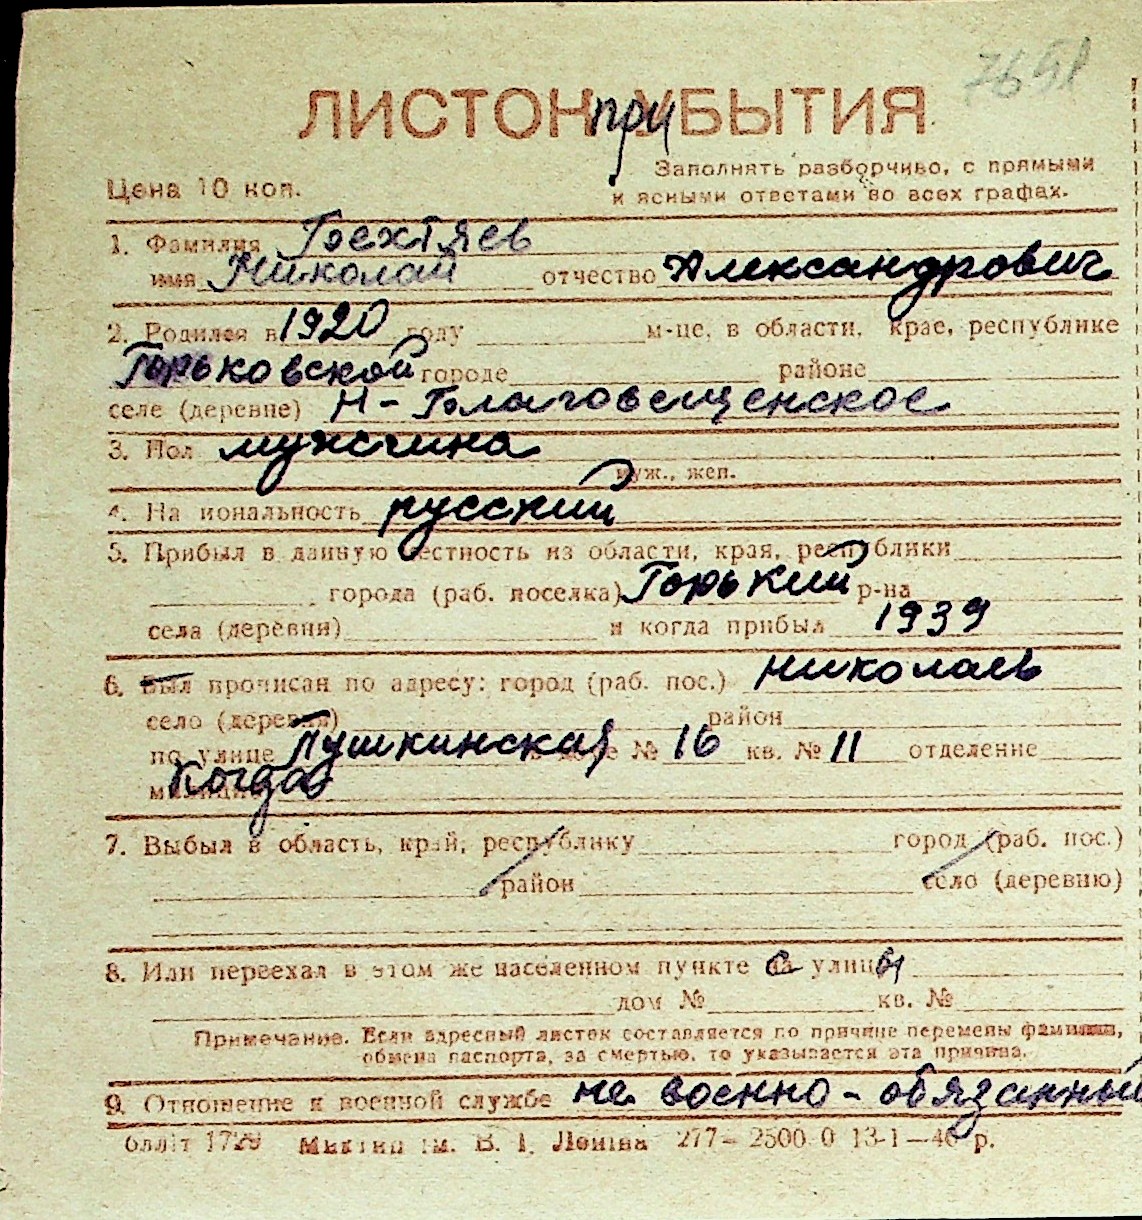 7651
ЛИСТОК ПРИ УБЫТИЯ
Заполнять разборчиво, с прямыми
Цена 10 коп. и ясными ответами во всех графах.
1. Фамилия Бехтяев
имя Николай отчество Александрович
2. Родился в 1920 году м-це, в области, крае, республике
Горьковской городе районе
селе (деревне) Н-Благовещенское
3. Пол мужчина
муж., жен.
4. Национальность русский
5. Прибыл в данную местность из области, края, республики
города (раб. поселка) Горький р-на
села (деревни) и когда прибыл 1939
6. Был прописан по адресу: город (раб. пос.) Николаев
село (деревня) район
по улице Пушкинская в доме № 16 кв. № 11 отделение
милиции Когда
7. Выбыл в область, край, республику город (раб. пос.)
район село (деревню)
8. Или переехал в этом же населенном пункте с улицы
дом № кв. №
Примечание. Если адресный листок составляется по причине перемены фамилии,
обмена паспорта, за смертью, то указывается эта причина.
9. Отношение к военной службе не военно-обязанный
блліт 1729 Миктип ім. В. І. Леніна 277–2500 0 13-1–40 р.